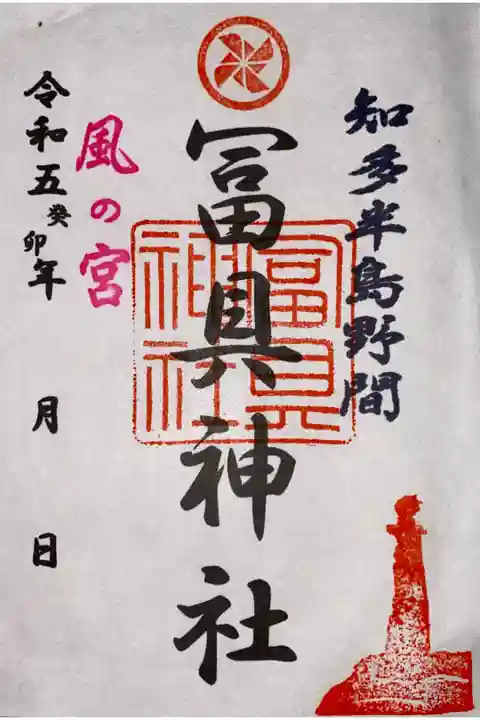 知多半島野間
冨具神社
冨具
神社
風の宮
令和五癸卯年　月　日